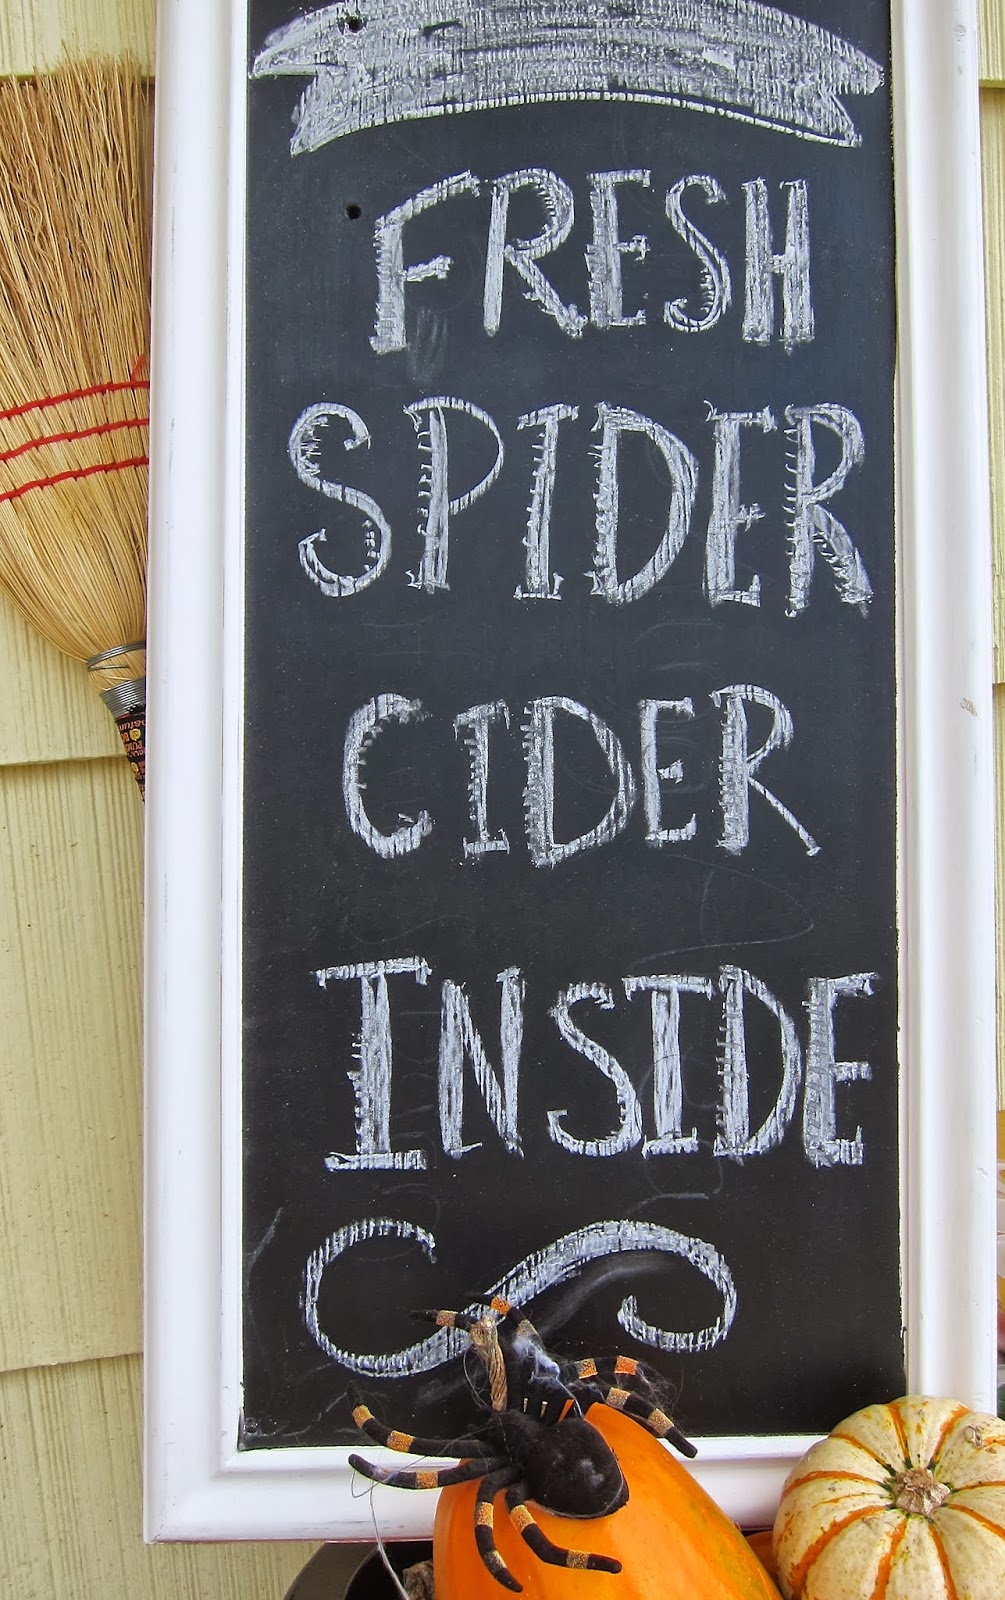 FRESH
SPIDER
CIDER
INSIDE